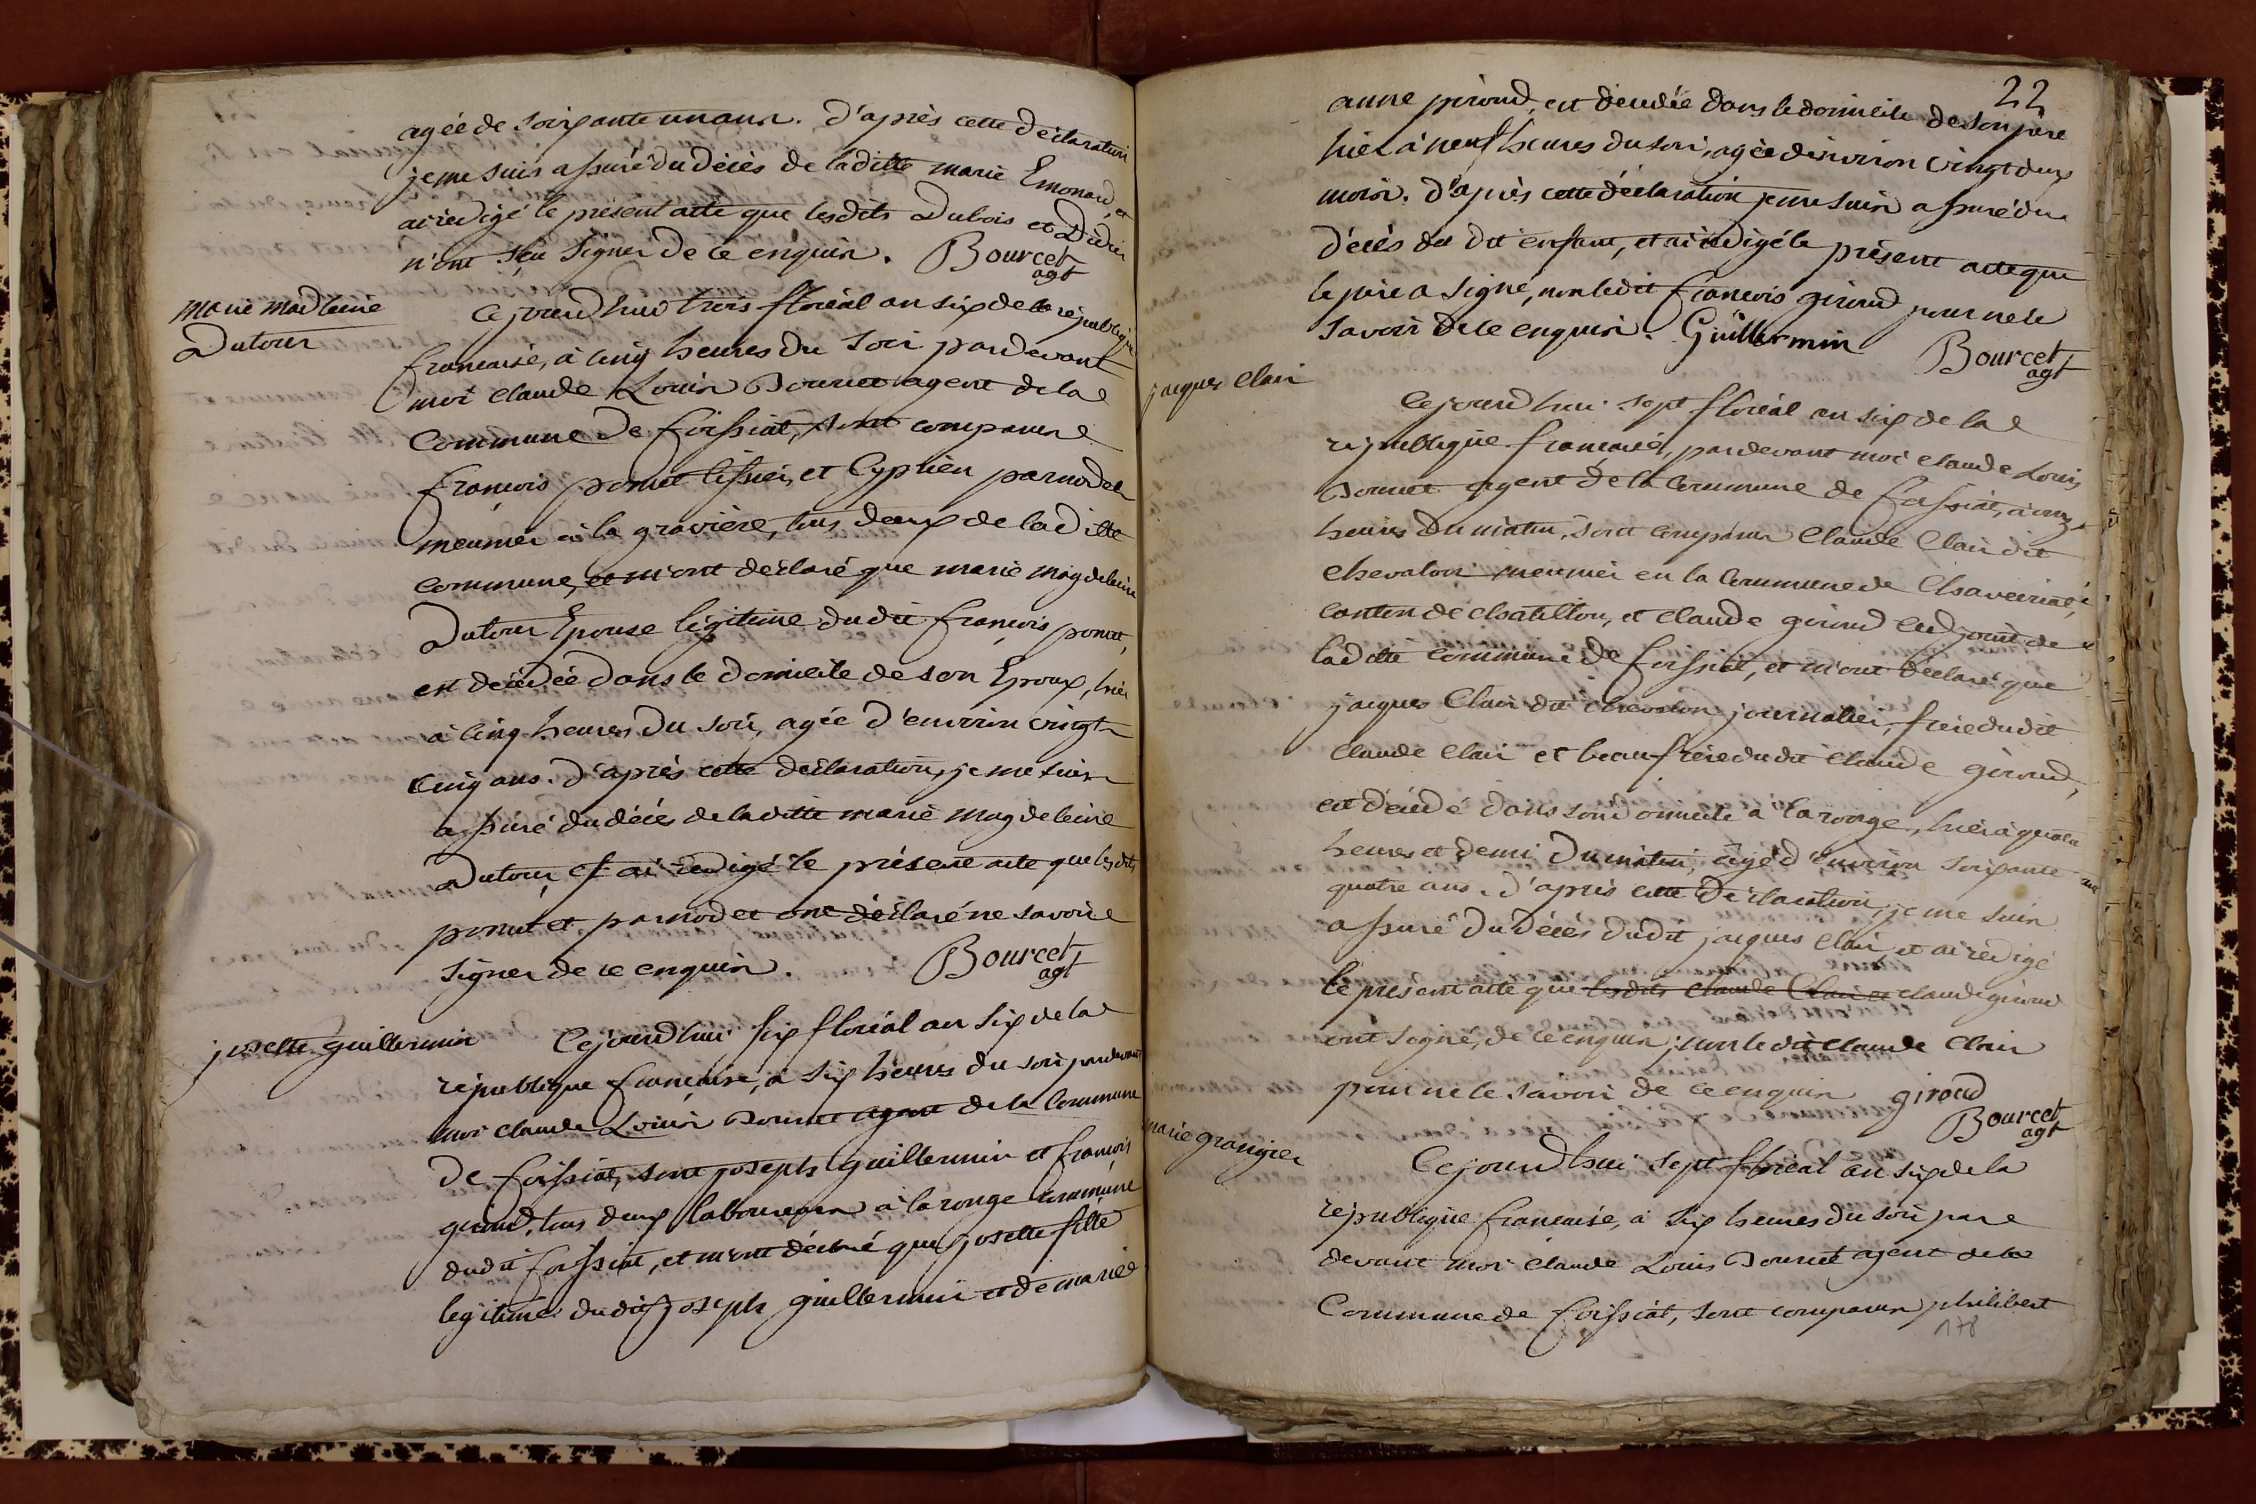 agée de soixante un ans. D'après cette déclaration
je me suis assuré du décès de laditte marie Emonard, et
ai rédigé le présent acte que lesdits Dubois et Didier
n'ont sçu signer de ce enquis. Bourcet
agt
marie madleine
Dutour
Cejourdhui trois floréal an six de la republique
francaise, à cinq heures du soir pardevant
moi Claude Louis Bourcet agent de la
Commune de foissiat, sont comparus
françois ponut tissier, et Cyprien parnodet
meunier à la gravière, tous deux de laditte
commune, et m'ont déclaré que marie magdeleine
Dutour Epouse légitime dudit françois ponut,
est décédée dans le domicile de son Epoux, hier
à cinq heures du soir, agée d'environ vingt
cinq ans. D'après cette déclaration, je me suis
assuré du décès de laditte marie magdeleine
Dutour, et ai rédigé le présent acte que lesdits
ponut et parnodet ont déclaré ne savoir
signer de ce enquis. Bourcet
agt
josette guillermin
Cejourdhui six floréal an six de la
république française, à six heures du soir pardevant
moi Claude Louis Bourcet agent de la Commune
de foissiat, sont joseph guillermin et françois
giroud, tous deux laboureurs à la rouge commune
dudit foissiat, et m'ont déclaré que josette fille
legitime dudit joseph guillermin et de marie
22
anne piroud, est décédée dans le domicile de son père
hier à neuf heures du soir, agée d'environ vingt deux
mois. D'après cette déclaration je me suis assuré du
décès du dit enfant, et ai rédigé le présent acte que
le père a signé, non ledit francois giroud pour ne le
savoir de ce enquis. Guillermin
Bourcet
agt
jacques Clair
Cejourdhui sept floréal an six de la
république française, pardevant moi claude Louis
Bourcet agent de la Commune de foissiat, à onze
heures du matin, sont comparus Claude Clair dit
chevalon meunier en la Commune de Chaveiriat,
canton de chatillon, et Claude giroud adjoint de
laditte commune de foissiat, et m'ont déclaré que
jacques Clair dit chevalon journalier, frère dudit
claude Clair et beau frère dudit Claude giroud,
est décédé dans son domicile à la rouge, hier à quatre
heures et demi du matin, âgé d'environ soixante
quatre ans. D'après cette déclaration, je me suis
assuré du décès dudit jacques Clair, et ai rédigé
le present acte que lesdits claude Clair et claude giroud
ont signé, de ce enquis, non ledit Claude Clair
pour ne le savoir de ce enquis giroud
Bourcet
agt
marie grangier
Cejourdhui sept floréal an six de la
république francaise, à six heures du soir par
devant moi claude Louis Bourcet agent de la
Commune de foissiat, sont comparus philibert
178